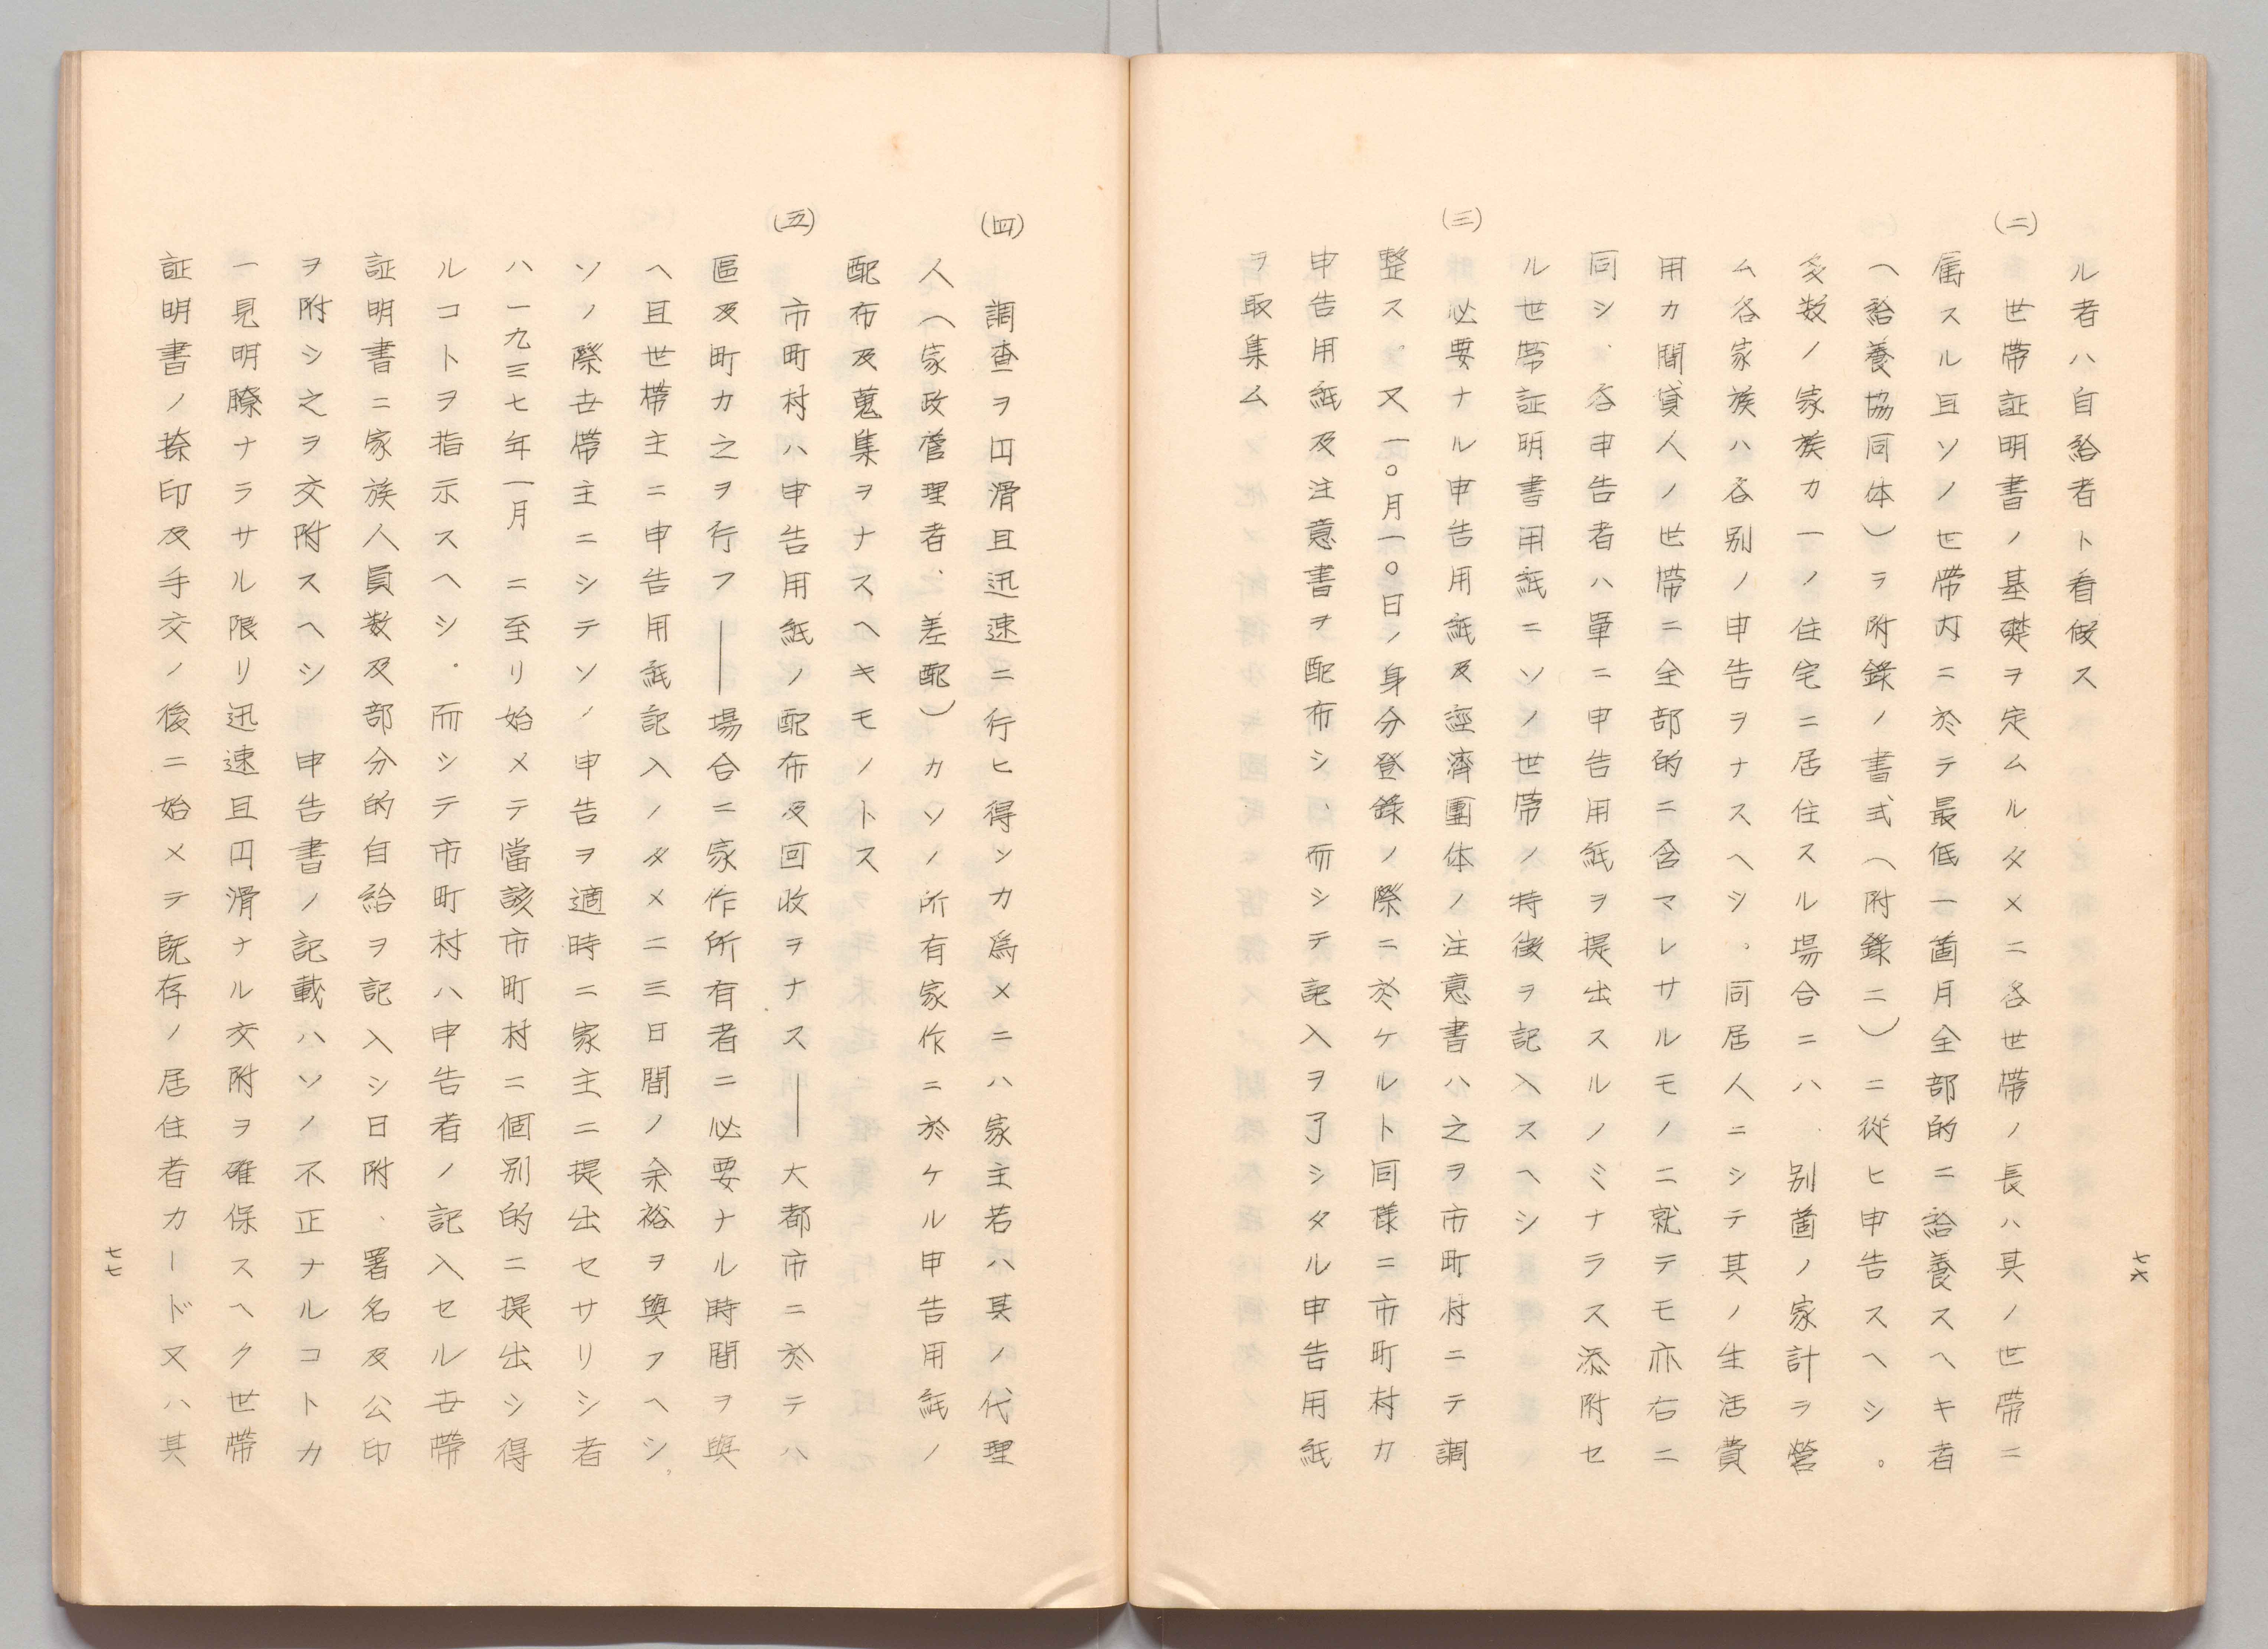 ル者ハ自給者ト看做ス
(二)
世帶証明書ノ基礎ヲ定ムルタメニ各世帶ノ長ハ其ノ世帶ニ
属スル且ソノ世帶内ニ於テ最低一箇月全部的ニ給養スヘキ者
(給養協同体)ヲ附錄ノ書式(附錄二)ニ從ヒ申告スヘシ。
多数ノ家族カ一ノ住宅ニ居住スル場合ニハ、別箇ノ家計ヲ營
ム各家族ハ各別ノ申告ヲナスヘシ。同居人ニシテ其ノ生活費
用カ間貸人ノ世帶ニ全部的ニ含マレサルモノニ就テモ亦右ニ
同シ、各申告者ハ單ニ申告用紙ヲ提出スルノミナラス添附セ
ル世帶証明書用紙ニソノ世帶ノ特徴ヲ記入スヘシ
(三)
必要ナル申告用紙及經濟團体ノ注意書ハ之ヲ市町村ニテ調
整ス。又一〇月一〇日ノ身分登錄ノ際ニ於ケルト同樣ニ市町村カ
申告用紙及注意書ヲ配布シ、而シテ記入ヲ了シタル申告用紙
ヲ取集ム
七六
(四)
調查ヲ円滑且迅速ニ行ヒ得ンカ爲メニハ家主若ハ其ノ代理
人(家政管理者、差配)カソノ所有家作ニ於ケル申告用紙ノ
配布及蒐集ヲナスヘキモノトス
(五)
市町村ハ申告用紙ノ配布及回收ヲナス——大都市ニ於テハ
區及町カ之ヲ行フ——場合ニ家作所有者ニ必要ナル時間ヲ與
ヘ且世帶主ニ申告用紙記入ノタメ二三日間ノ余裕ヲ與フヘシ、
ソノ際世帶主ニシテソノ申告ヲ適時ニ家主ニ提出セサリシ者
ハ一九三七年一月 ニ至リ始メテ當該市町村ニ個別的ニ提出シ得
ルコトヲ指示スヘシ.而シテ市町村ハ申告者ノ記入セル世帶
証明書ニ家族人員数及部分的自給ヲ記入シ日附、署名及公印
ヲ附シ之ヲ交附スヘシ 申告書ノ記載ハソノ不正ナルコトカ
一見明瞭ナラサル限リ迅速且円滑ナル交附ヲ確保スヘク世帶
証明書ノ捺印及手交ノ後ニ始メテ既存ノ居住者カード又ハ其
七七